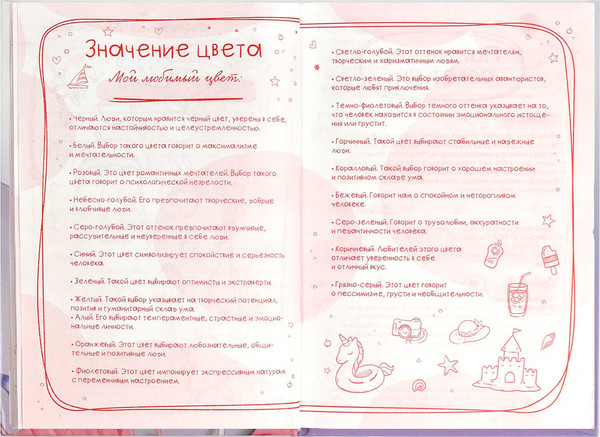 Значение цвета
Мой любимый цвет:
• Черный. Люди, которым нравится черный цвет, уверены в себе,
отличаются настойчивостью и целеустремленностью.
• Белый. Выбор такого цвета говорит о максимализме
и мечтательности.
• Розовый. Это цвет романтичных мечтателей. Выбор такого
цвета говорит о психологической незрелости.
• Небесно-голубой. Его предпочитают творческие, добрые
и влюбчивые люди.
• Серо-голубой. Этот оттенок предпочитают вдумчивые,
рассудительные и неуверенные в себе люди.
• Синий. Этот цвет символизирует спокойствие и серьезность
человека.
• Зеленый. Такой цвет выбирают оптимисты и экстраверты.
• Желтый. Такой выбор указывает на творческий потенциал,
позитив и гуманитарный склад ума.
• Алый. Его выбирают темпераментные, страстные и эмоцио-
нальные личности.
• Оранжевый. Этот цвет выбирают любознательные, общи-
тельные и позитивные люди.
• Фиолетовый. Этот цвет импонирует экспрессивным натурам
с переменчивым настроением.
• Светло-голубой. Этот оттенок нравится мечтателям,
творческим и харизматичным людям.
• Светло-зеленый. Это выбор изобретательных авантюристов,
которые любят приключения.
• Темно-фиолетовый. Выбор темного оттенка указывает на то,
что человек находится в состоянии эмоционального истоще-
ния или грустит.
• Горчичный. Такой цвет выбирают стабильные и надежные
люди.
• Коралловый. Такой выбор говорит о хорошем настроении
и позитивном складе ума.
• Бежевый. Говорит нам о спокойном и неторопливом
человеке.
• Серо-зеленый. Говорит о трудолюбии, аккуратности
и педантичности человека.
• Коричневый. Любителей этого цвета
отличает уверенность в себе
и отличный вкус.
• Грязно-серый. Этот цвет говорит
о пессимизме, грусти и необщительности.